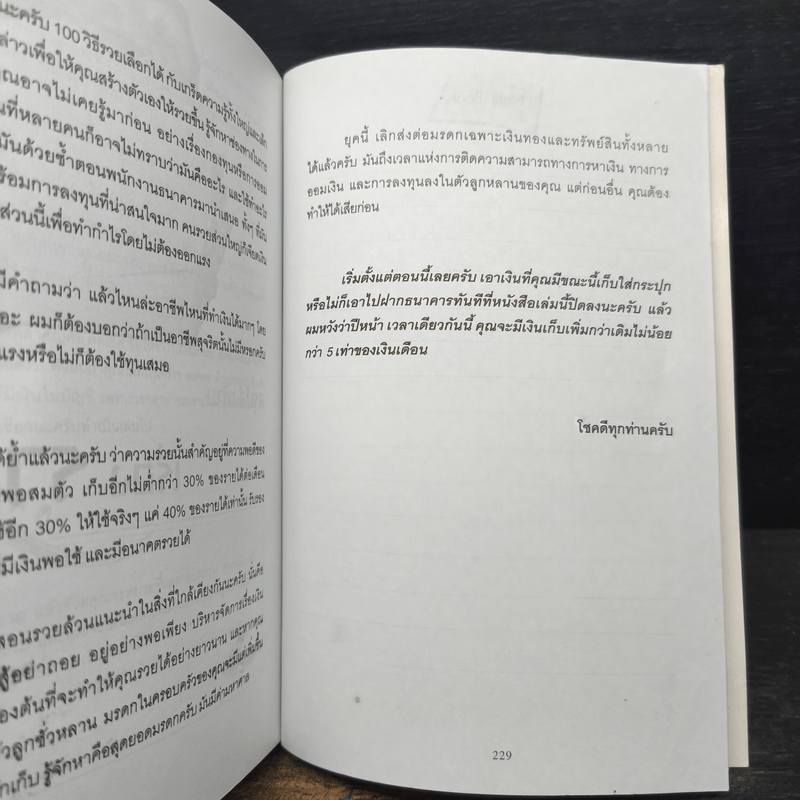 นะครับ 100 วิธีรวยเลือกได้ กับเกร็ดความรู้ทั้งใหญ่และเล็ก
ล่าวเพื่อให้คุณสร้างตัวเองให้รวยขึ้น รู้จักหาช่องทางในการ
คุณอาจไม่เคยรู้มาก่อน อย่างเรื่องกองทุนหรือการออม
นที่หลายคนก็อาจไม่ทราบว่ามันคืออะไร และใช้ทำอะไร
มันด้วยซ้ำตอนพนักงานธนาคารมานำเสนอ ทั้งๆ ที่มัน
ร้อมการลงทุนที่น่าสนใจมาก คนรวยส่วนใหญ่ก็เจียดเงิน
ส่วนนี้เพื่อทำกำไรโดยไม่ต้องออกแรง
มีคำถามว่า แล้วไหนล่ะอาชีพไหนที่ทำเงินได้มากๆ โดย
อะ ผมก็ต้องบอกว่าถ้าเป็นอาชีพสุจริตนั้นไม่มีหรอกครับ
แรงหรือไม่ก็ต้องใช้ทุนเสมอ
ด้ย้ำแล้วนะครับ ว่าความรวยนั้นสำคัญอยู่ที่ความพอดีของ
พอสมตัว เก็บอีกไม่ต่ำกว่า 30% ของรายได้ต่อเดือน
อีก 30% ให้ใช้จริงๆ แค่ 40% ของรายได้เท่านั้น รับรอง
มีเงินพอใช้ และมีอนาคตรวยได้
สอนรวยล้วนแนะนำในสิ่งที่ใกล้เคียงกันนะครับ นั่นคือ
สู้อย่าถอย อยู่อย่างพอเพียง บริหารจัดการเรื่องเงิน
องต้นที่จะทำให้คุณรวยได้อย่างยาวนาน และหากคุณ
ลูกชั่วหลาน มรดกในครอบครัวของคุณจะมีแต่เพิ่มขึ้น
เก็บ รู้จักหาคือสุดยอดมรดกครับ มันมีค่ามหาศาล
ยุคนี้ เลิกส่งต่อมรดกเฉพาะเงินทองและทรัพย์สินทั้งหลาย
ได้แล้วครับ มันถึงเวลาแห่งการติดความสามารถทางการหาเงิน ทางการ
ออมเงิน และการลงทุนลงในตัวลูกหลานของคุณ แต่ก่อนอื่น คุณต้อง
ทำให้ได้เสียก่อน
เริ่มตั้งแต่ตอนนี้เลยครับ เอาเงินที่คุณมีขณะนี้เก็บใส่กระปุก
หรือไม่ก็เอาไปฝากธนาคารทันทีที่หนังสือเล่มนี้ปิดลงนะครับ แล้ว
ผมหวังว่าปีหน้า เวลาเดียวกันนี้ คุณจะมีเงินเก็บเพิ่มกว่าเดิมไม่น้อย
กว่า 5 เท่าของเงินเดือน
โชคดีทุกท่านครับ
229